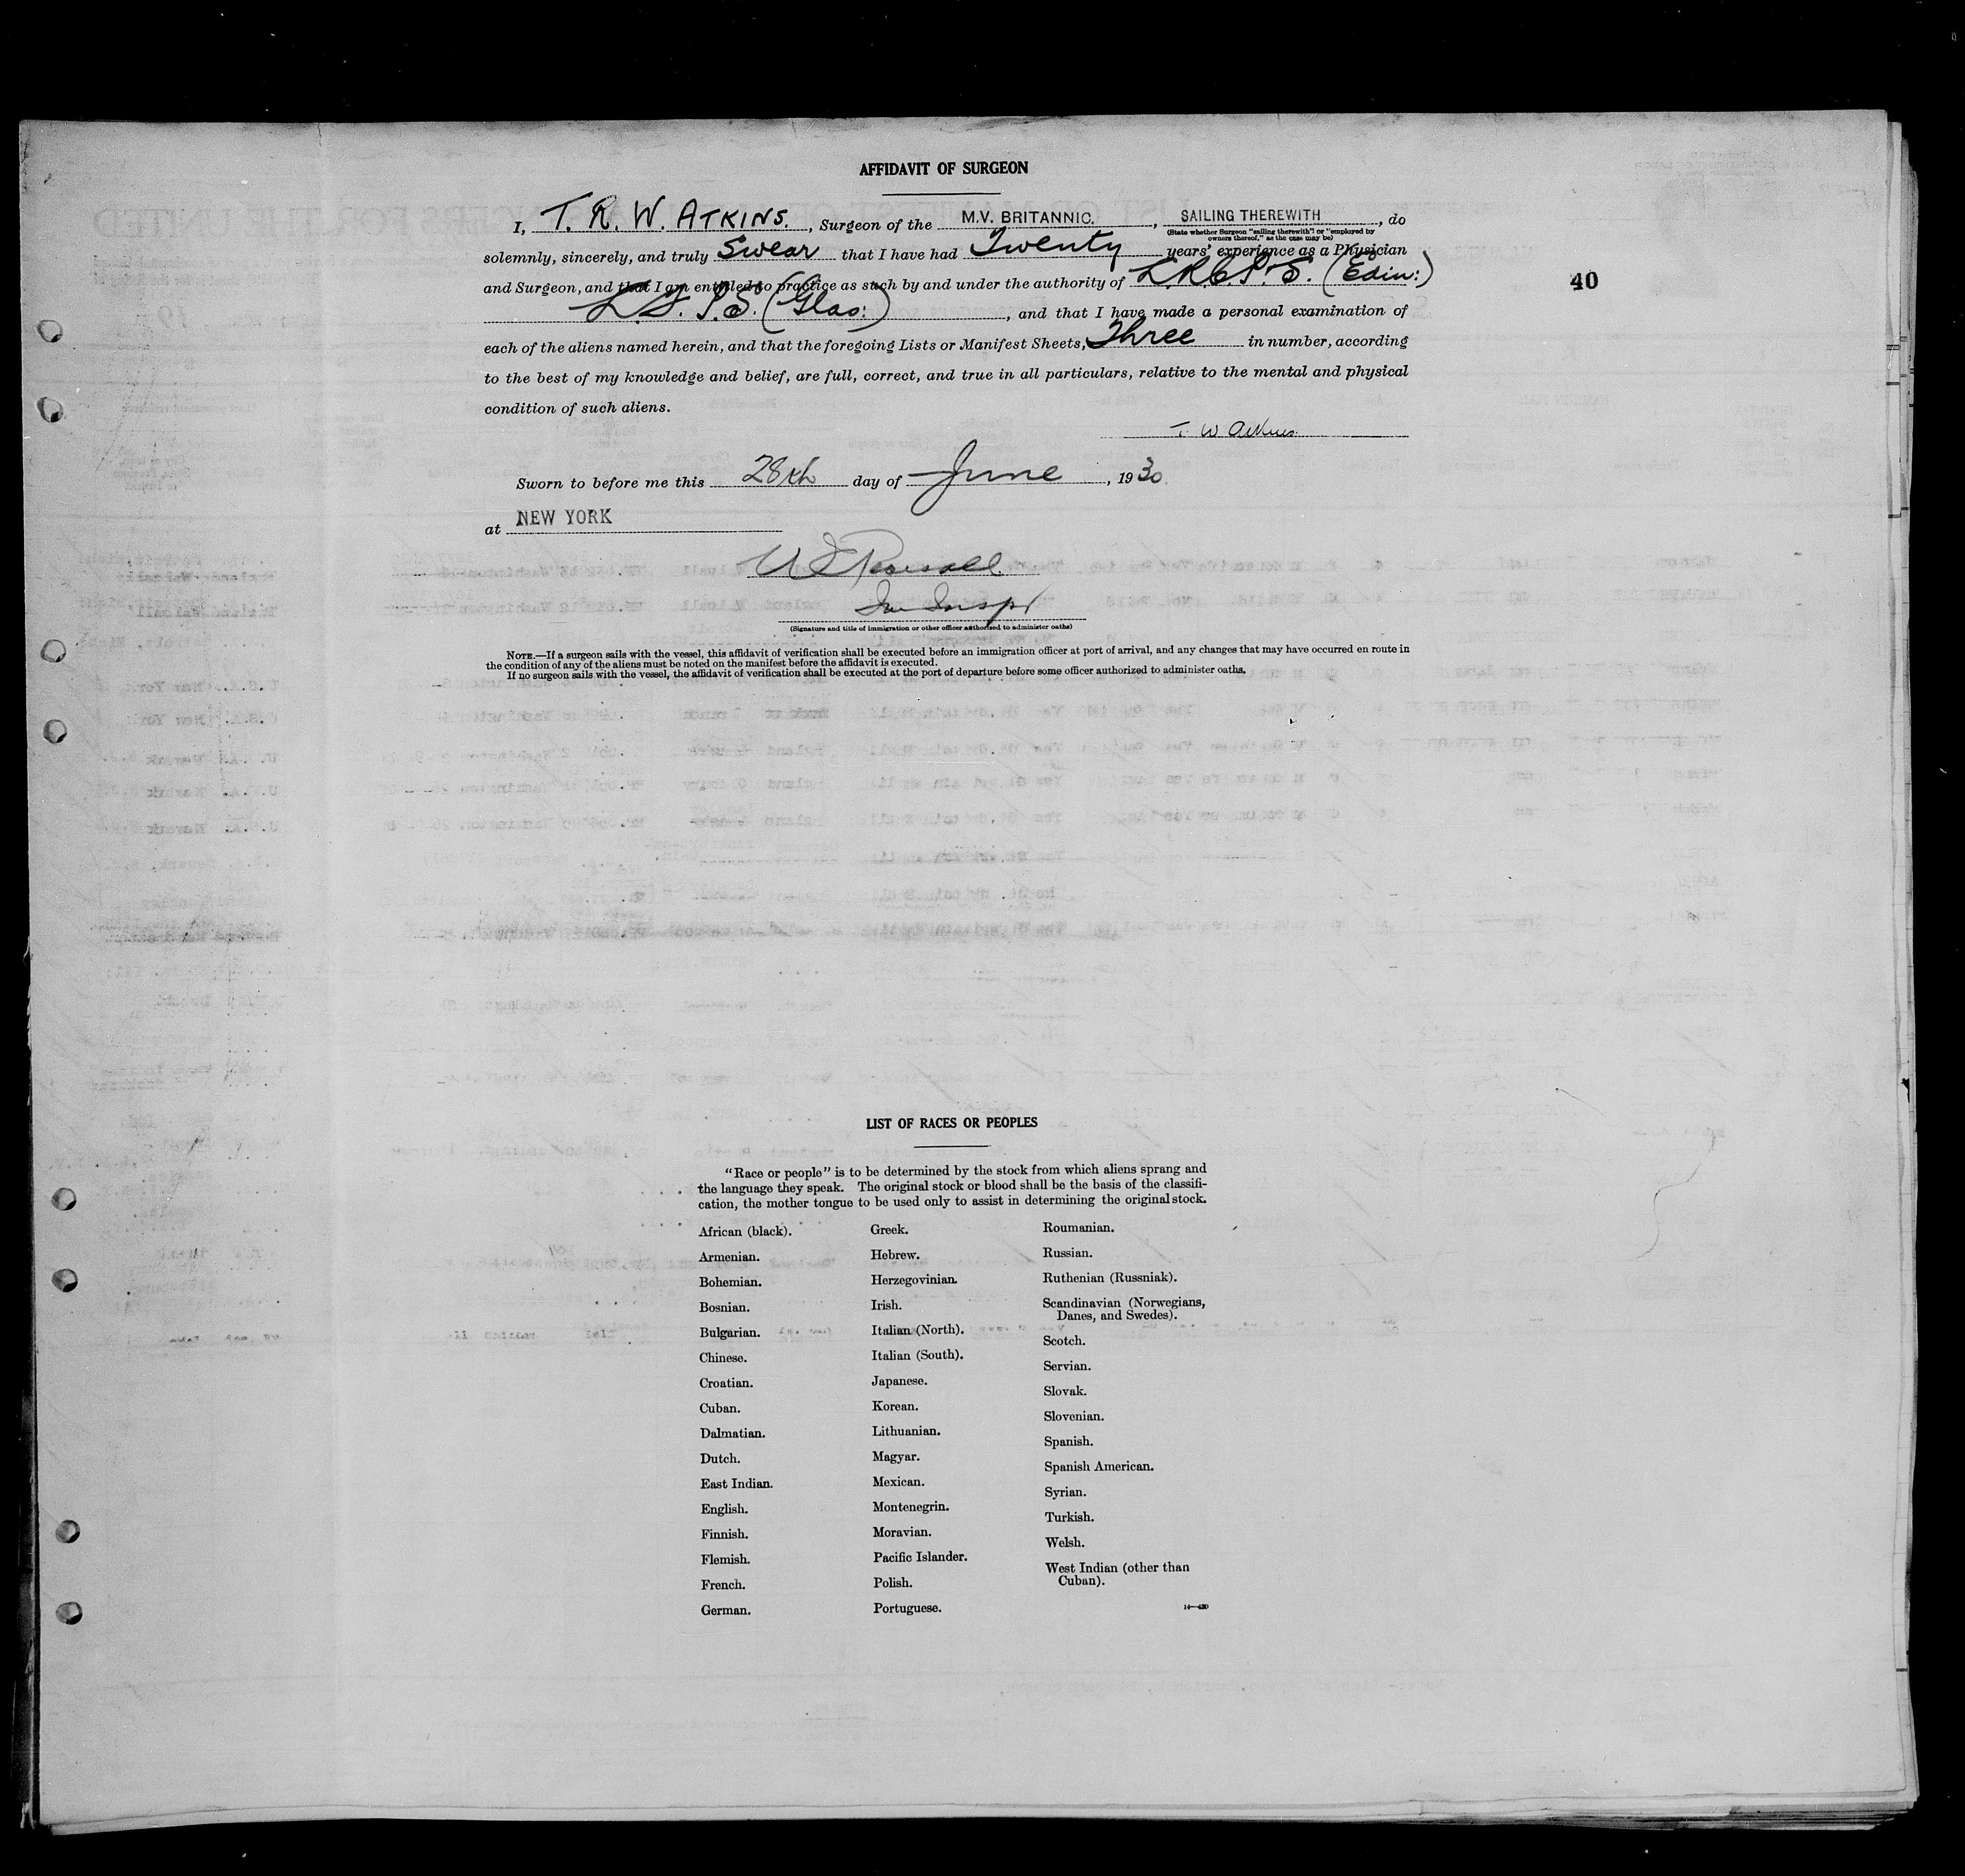 AFFIDAVIT OF SURGEON
I, T. R. W. ATKINS. , Surgeon of the M.V. BRITANNIC. , SAILING THEREWITH , do
(State whether Surgeon "sailing therewith" or "employed by
owners thereof," as the case may be)
solemnly, sincerely, and truly Swear that I have had Twenty years' experience as a Physician
and Surgeon, and that I am entitled to practice as such by and under the authority of L.R.C.P.S. (Edin:)
L.F.P.S. (Glas:) , and that I have made a personal examination of
40
each of the aliens named herein, and that the foregoing Lists or Manifest Sheets, Three in number, according
to the best of my knowledge and belief, are full, correct, and true in all particulars, relative to the mental and physical
condition of such aliens.
T W Atkins
Sworn to before me this 28th day of June , 1930.
at NEW YORK
Imm Inspr
(Signature and title of immigration or other officer authorized to administer oaths)
NOTE.—If a surgeon sails with the vessel, this affidavit of verification shall be executed before an immigration officer at port of arrival, and any changes that may have occurred en route in
the condition of any of the aliens must be noted on the manifest before the affidavit is executed.
If no surgeon sails with the vessel, the affidavit of verification shall be executed at the port of departure before some officer authorized to administer oaths.
LIST OF RACES OR PEOPLES
"Race or people" is to be determined by the stock from which aliens sprang and
the language they speak. The original stock or blood shall be the basis of the classifi-
cation, the mother tongue to be used only to assist in determining the original stock.
African (black).
Armenian.
Bohemian.
Bosnian.
Bulgarian.
Chinese.
Croatian.
Cuban.
Dalmatian.
Dutch.
East Indian.
English.
Finnish.
Flemish.
French.
German.
Greek.
Hebrew.
Herzegovinian.
Irish.
Italian (North).
Italian (South).
Japanese.
Korean.
Lithuanian.
Magyar.
Mexican.
Montenegrin.
Moravian.
Pacific Islander.
Polish.
Portuguese.
Roumanian.
Russian.
Ruthenian (Russniak).
Scandinavian (Norwegians,
Danes, and Swedes).
Scotch.
Servian.
Slovak.
Slovenian.
Spanish.
Spanish American.
Syrian.
Turkish.
Welsh.
West Indian (other than
Cuban).